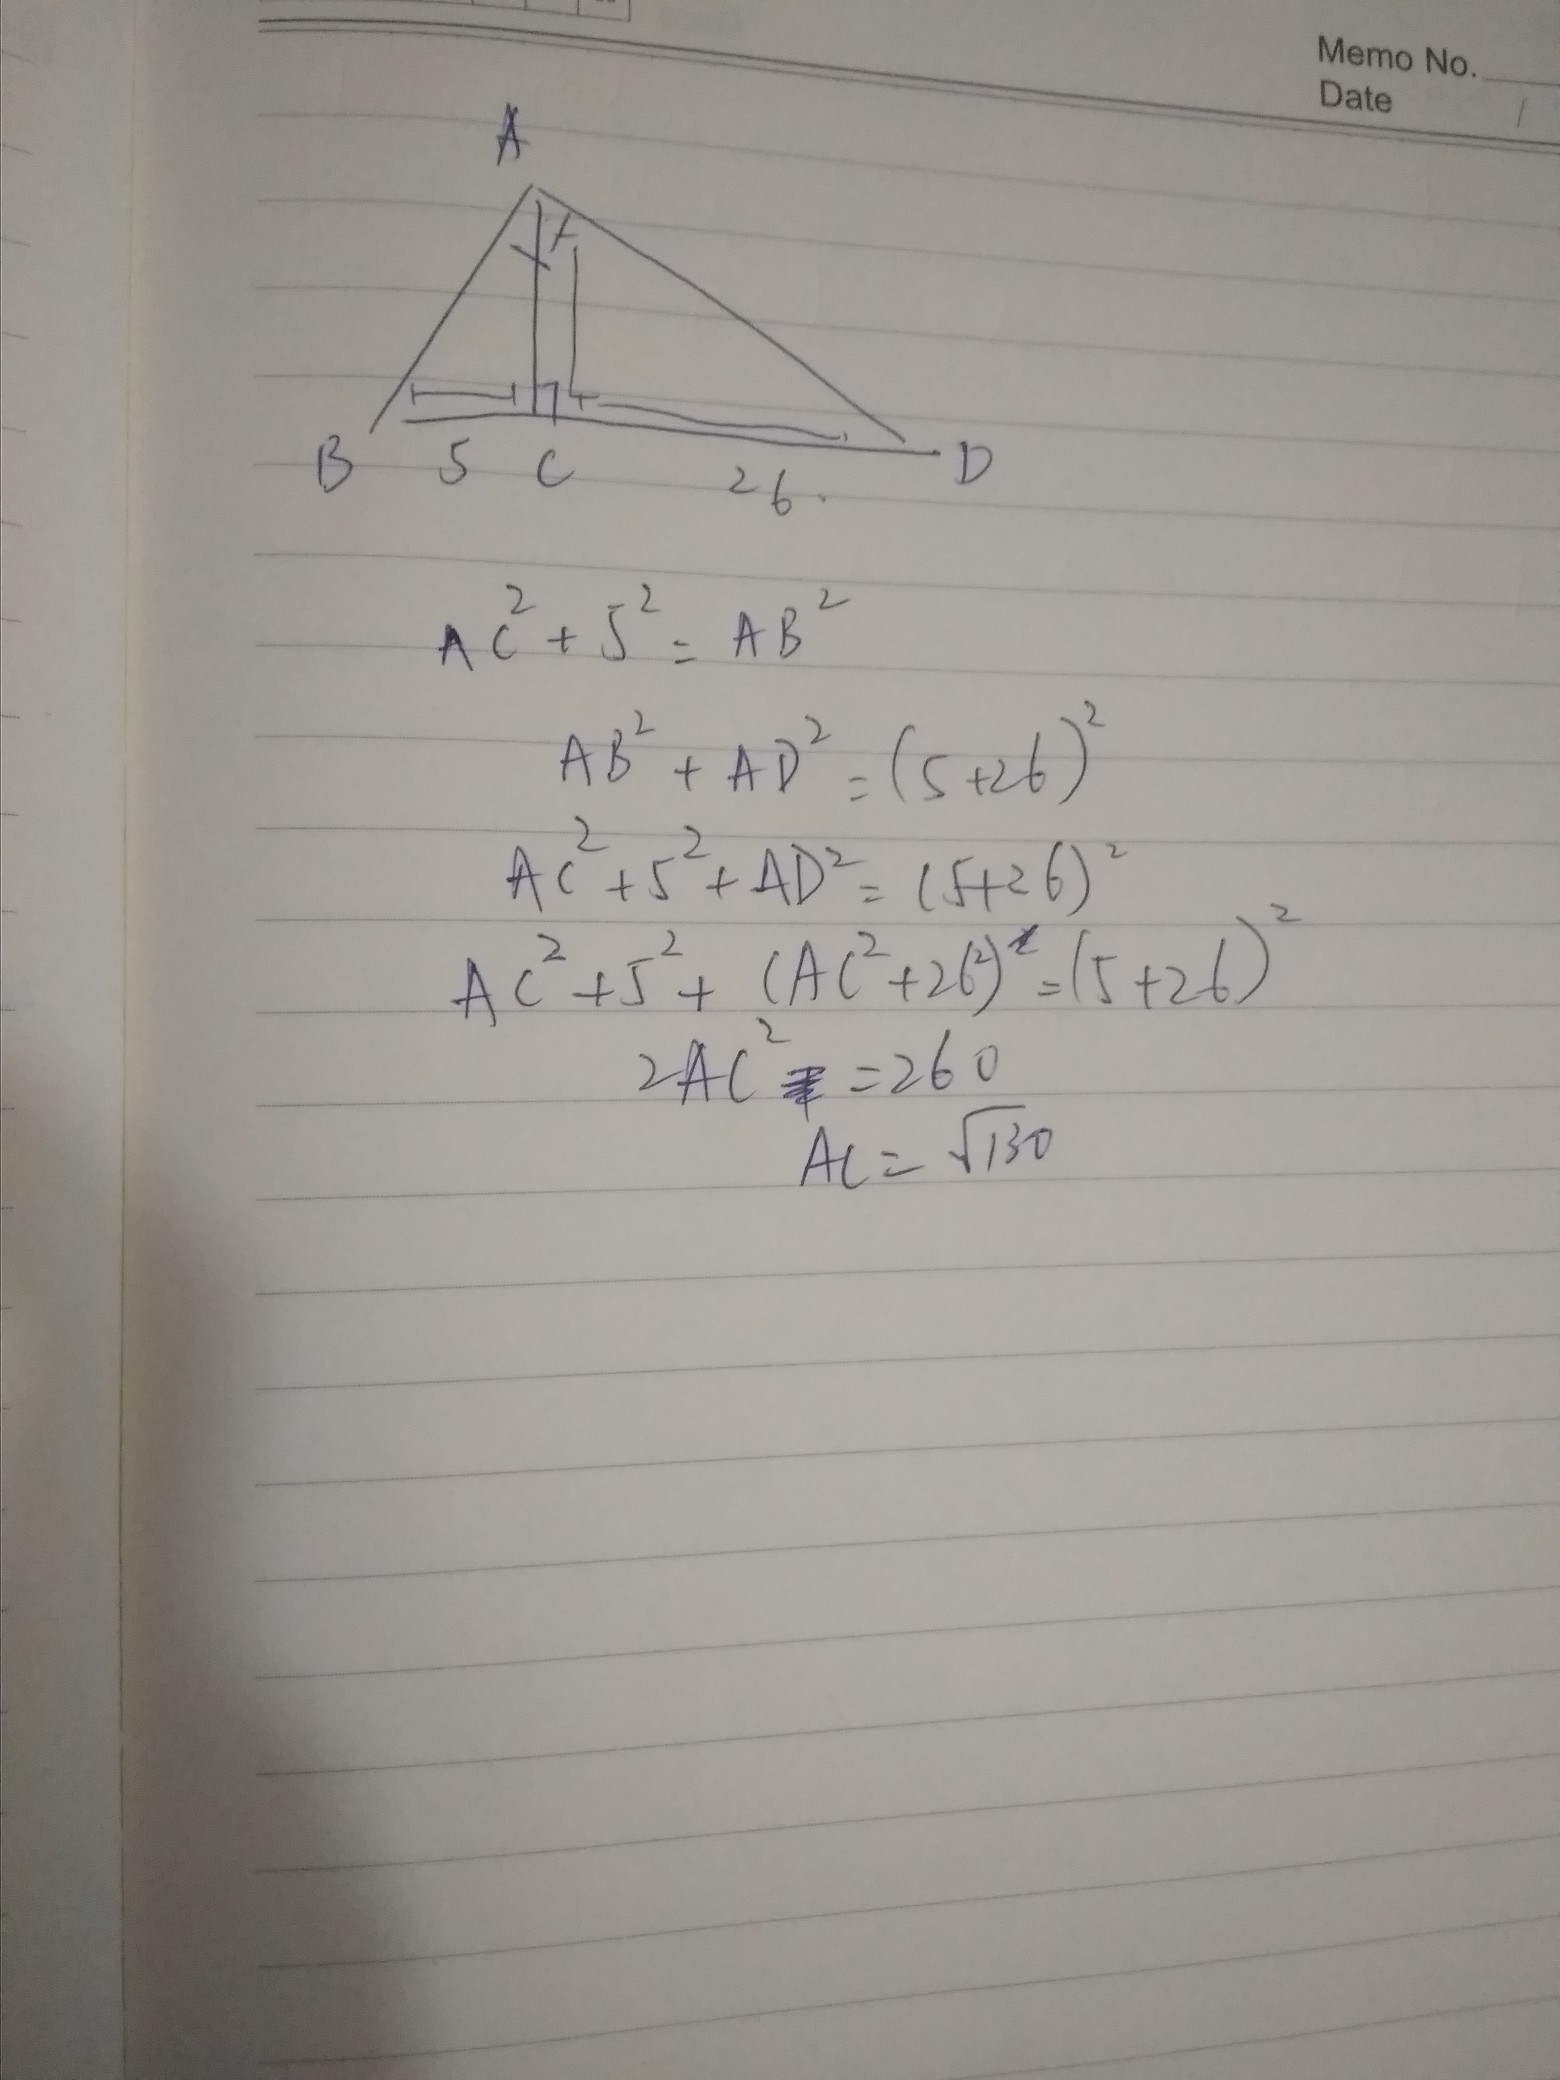 Memo No.
Date /
A
B 5 C 26. D
AC² + 5² = AB²
AB² + AD² = (5+26)²
AC² + 5² + AD² = (5+26)²
AC² + 5² + (AC² + 26²) = (5+26)²
2AC² = 260
AC = √130